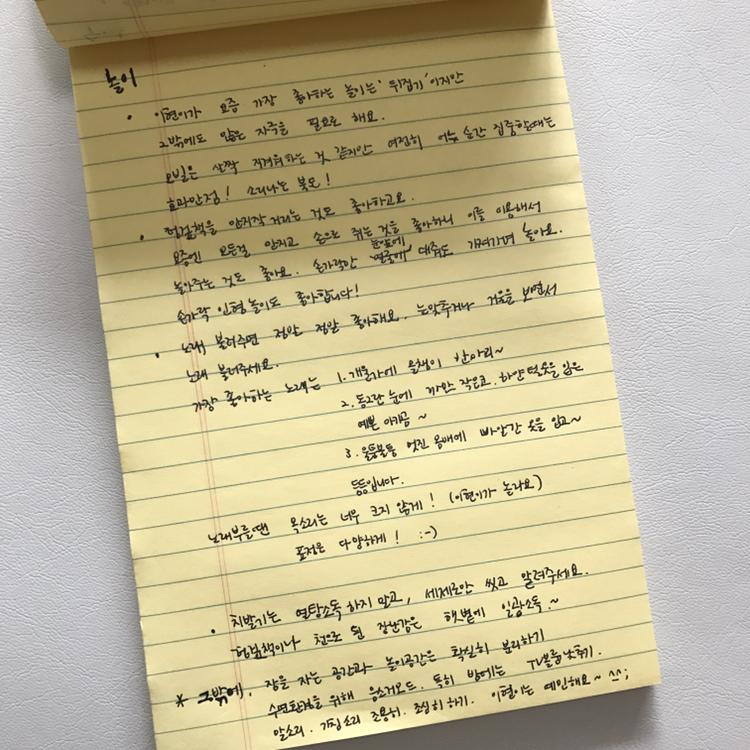 놀이
• 이현이가 요즘 가장 좋아하는 놀이는 '뒤집기' 이지만
그밖에도 많은 자극을 필요로 해요.
모빌은 살짝 지겨워하는 것 같지만 여전히 어느 순간 집중할때는
효과만점! 소리나는 북도!
• 헝겊책을 만지작 거리는 것도 좋아하고요.
요즘엔 모든걸 만지고 손으로 쥐는 것을 좋아하니 이를 이용해서
놀아주는 것도 좋아요. 손가락만 눈앞에 대줘도 까르르가며 놀아요.
손가락 인형놀이도 좋아합니다!
• 노래 불러주면 정말 정말 좋아해요. 눈맞추거나 거울을 보면서
노래 불러주세요.
가장 좋아하는 노래는 1. 개울가에 올챙이 한마리~
2. 동그란 눈에 까만 작은코 하얀 털옷을 입은
예쁜 아기곰~
3. 울퉁불퉁 멋진 몸매에 빠알간 옷을 입고~
등등입니다.
노래부를땐 목소리는 너무 크지 않게! (이현이가 놀라요)
표정은 다양하게! :-)
• 치발기는 열탕소독 하지 말고, 세제로만 씻고 말려주세요.
헝겊책이나 천으로 된 장난감은 햇볕에 일광소독.~
* 그밖에, 잠을 자는 공간과 놀이공간은 확실히 분리하기
수면환경을 위해 음소거모드. 특히 밤에는 TV볼륨 낮추기.
말소리. 기침소리 조용히. 조심히 하기. 이현이는 예민해요~ ^^;